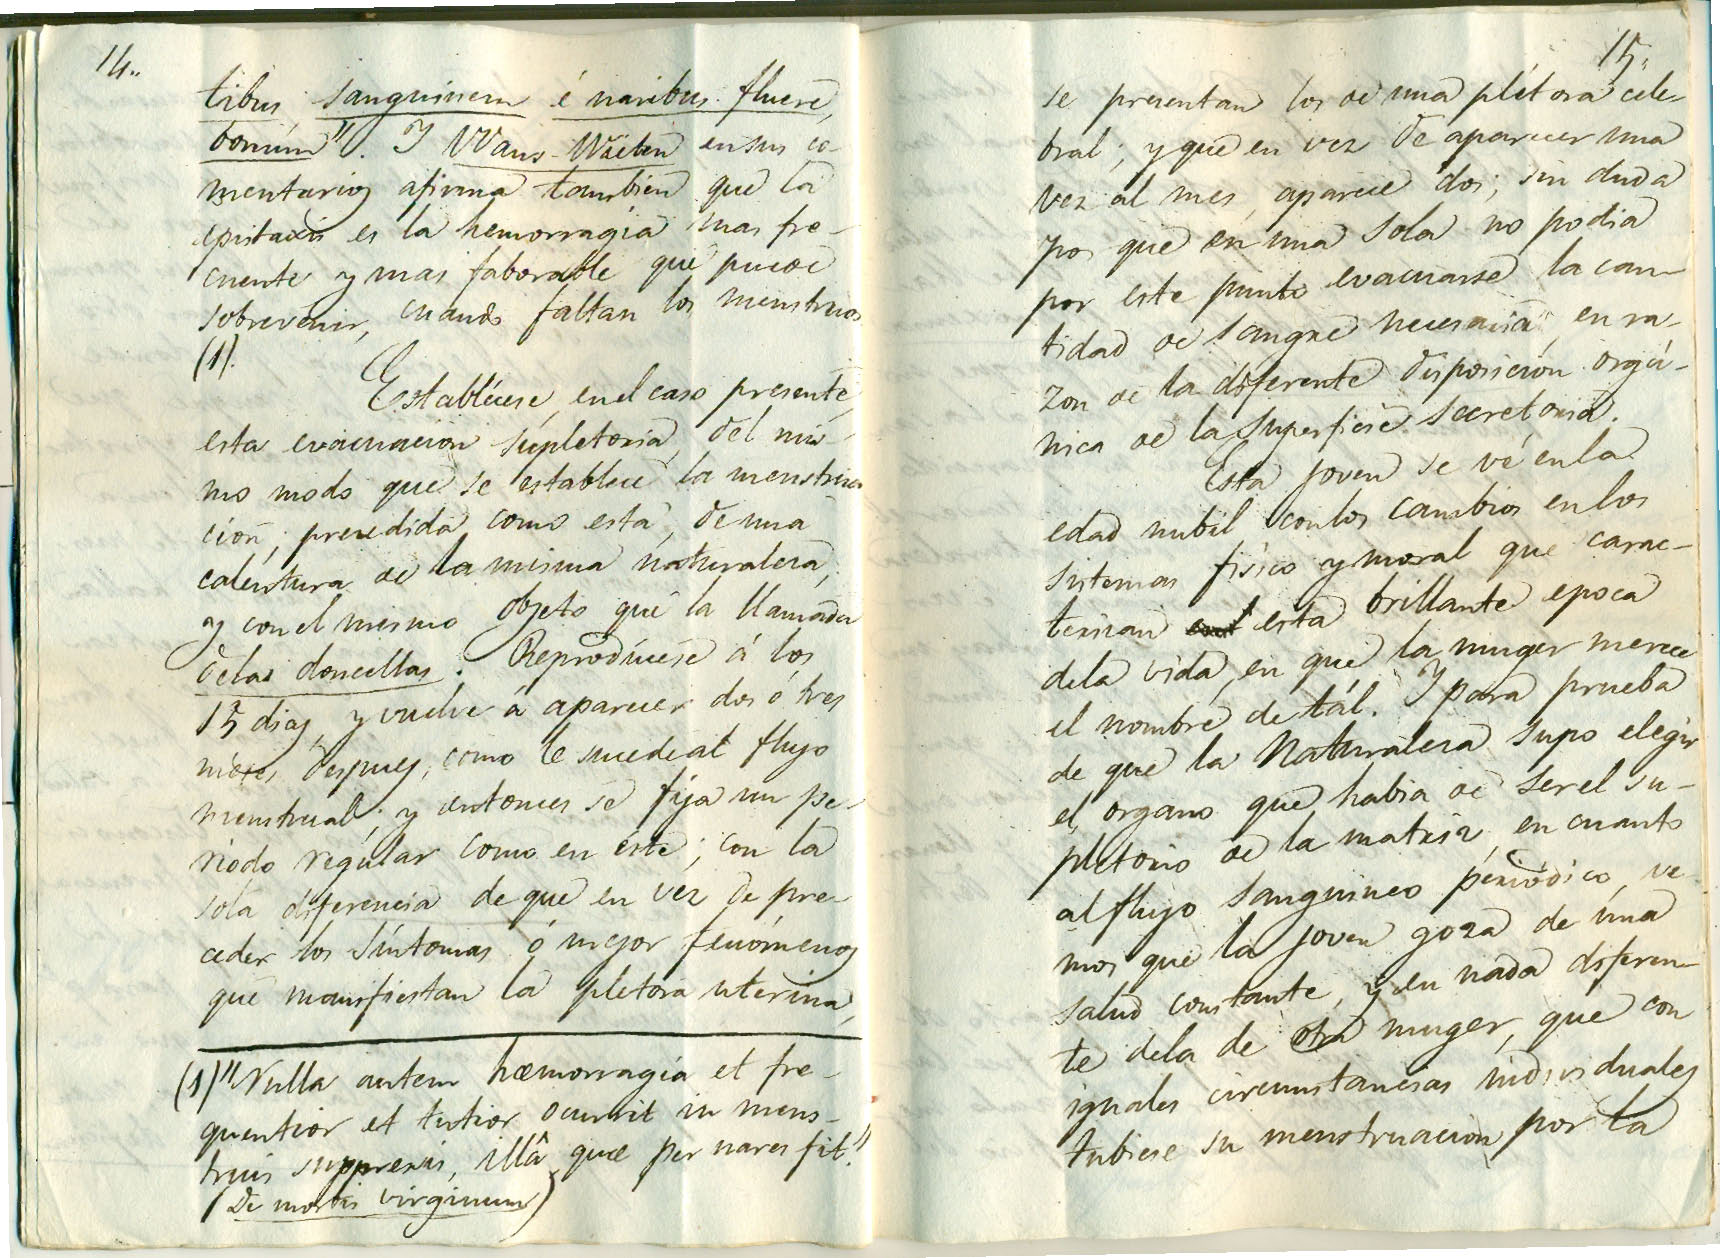 14..
tibus, sanguinem é naribus fluere,
bonum". Y Wans-Wieten en sus co
mentarios afirma tambien que la
epistaxis es la hemorragia mas fre-
cuente y mas faborable que puede
sobrevenir, cuando faltan los menstruos
(1).
Establécese, en el caso presente,
esta evacuacion supletoria, del mis-
mo modo que se establece la menstrua
ción, precedida como está, de una
calentura de la misma naturaleza,
y con el mismo objeto que la llamada
de las doncellas. Reprodúcese á los
15 dias, y vuelve á aparecer dos ó tres
meses despues, como le sucede al flujo
menstrual; y entonces se fija un pe-
riodo regular como en éste; con la
sola diferencia de que en vez de pre-
ceder los síntomas ó mejor fenómenos
que manifiestan la pletora uterina,
(1) "Nulla autem hæmorragia et fre-
quentior et tutior ocurrit in mens-
truis suppresis, illâ quæ per nares fit."
(De morbis virginum)
15..
se presentan los de una plétora cele-
bral; y que en vez de aparecer una
vez al mes, aparece dos; sin duda
por que en una sola no podia
por este punto evacuarse la can-
tidad de sangre necesaria, en ra-
zon de la diferente disposicion orgá-
nica de la superficie secretoria.
Esta joven se vé en la
edad nubil, con los cambios en los
sistemas físico y moral que carac-
terizan esta brillante epoca
de la vida, en que la muger merece
el nombre de tál. Y para prueba
de que la Naturaleza supo elegir
el organo que habia de ser el su-
pletorio de la matriz, en cuanto
al flujo sanguineo periódico, ve-
mos que la joven goza de una
salud constante, y en nada diferen-
te de la de otra muger, que con
iguales circunstancias individuales
tubiese su menstruacion por la